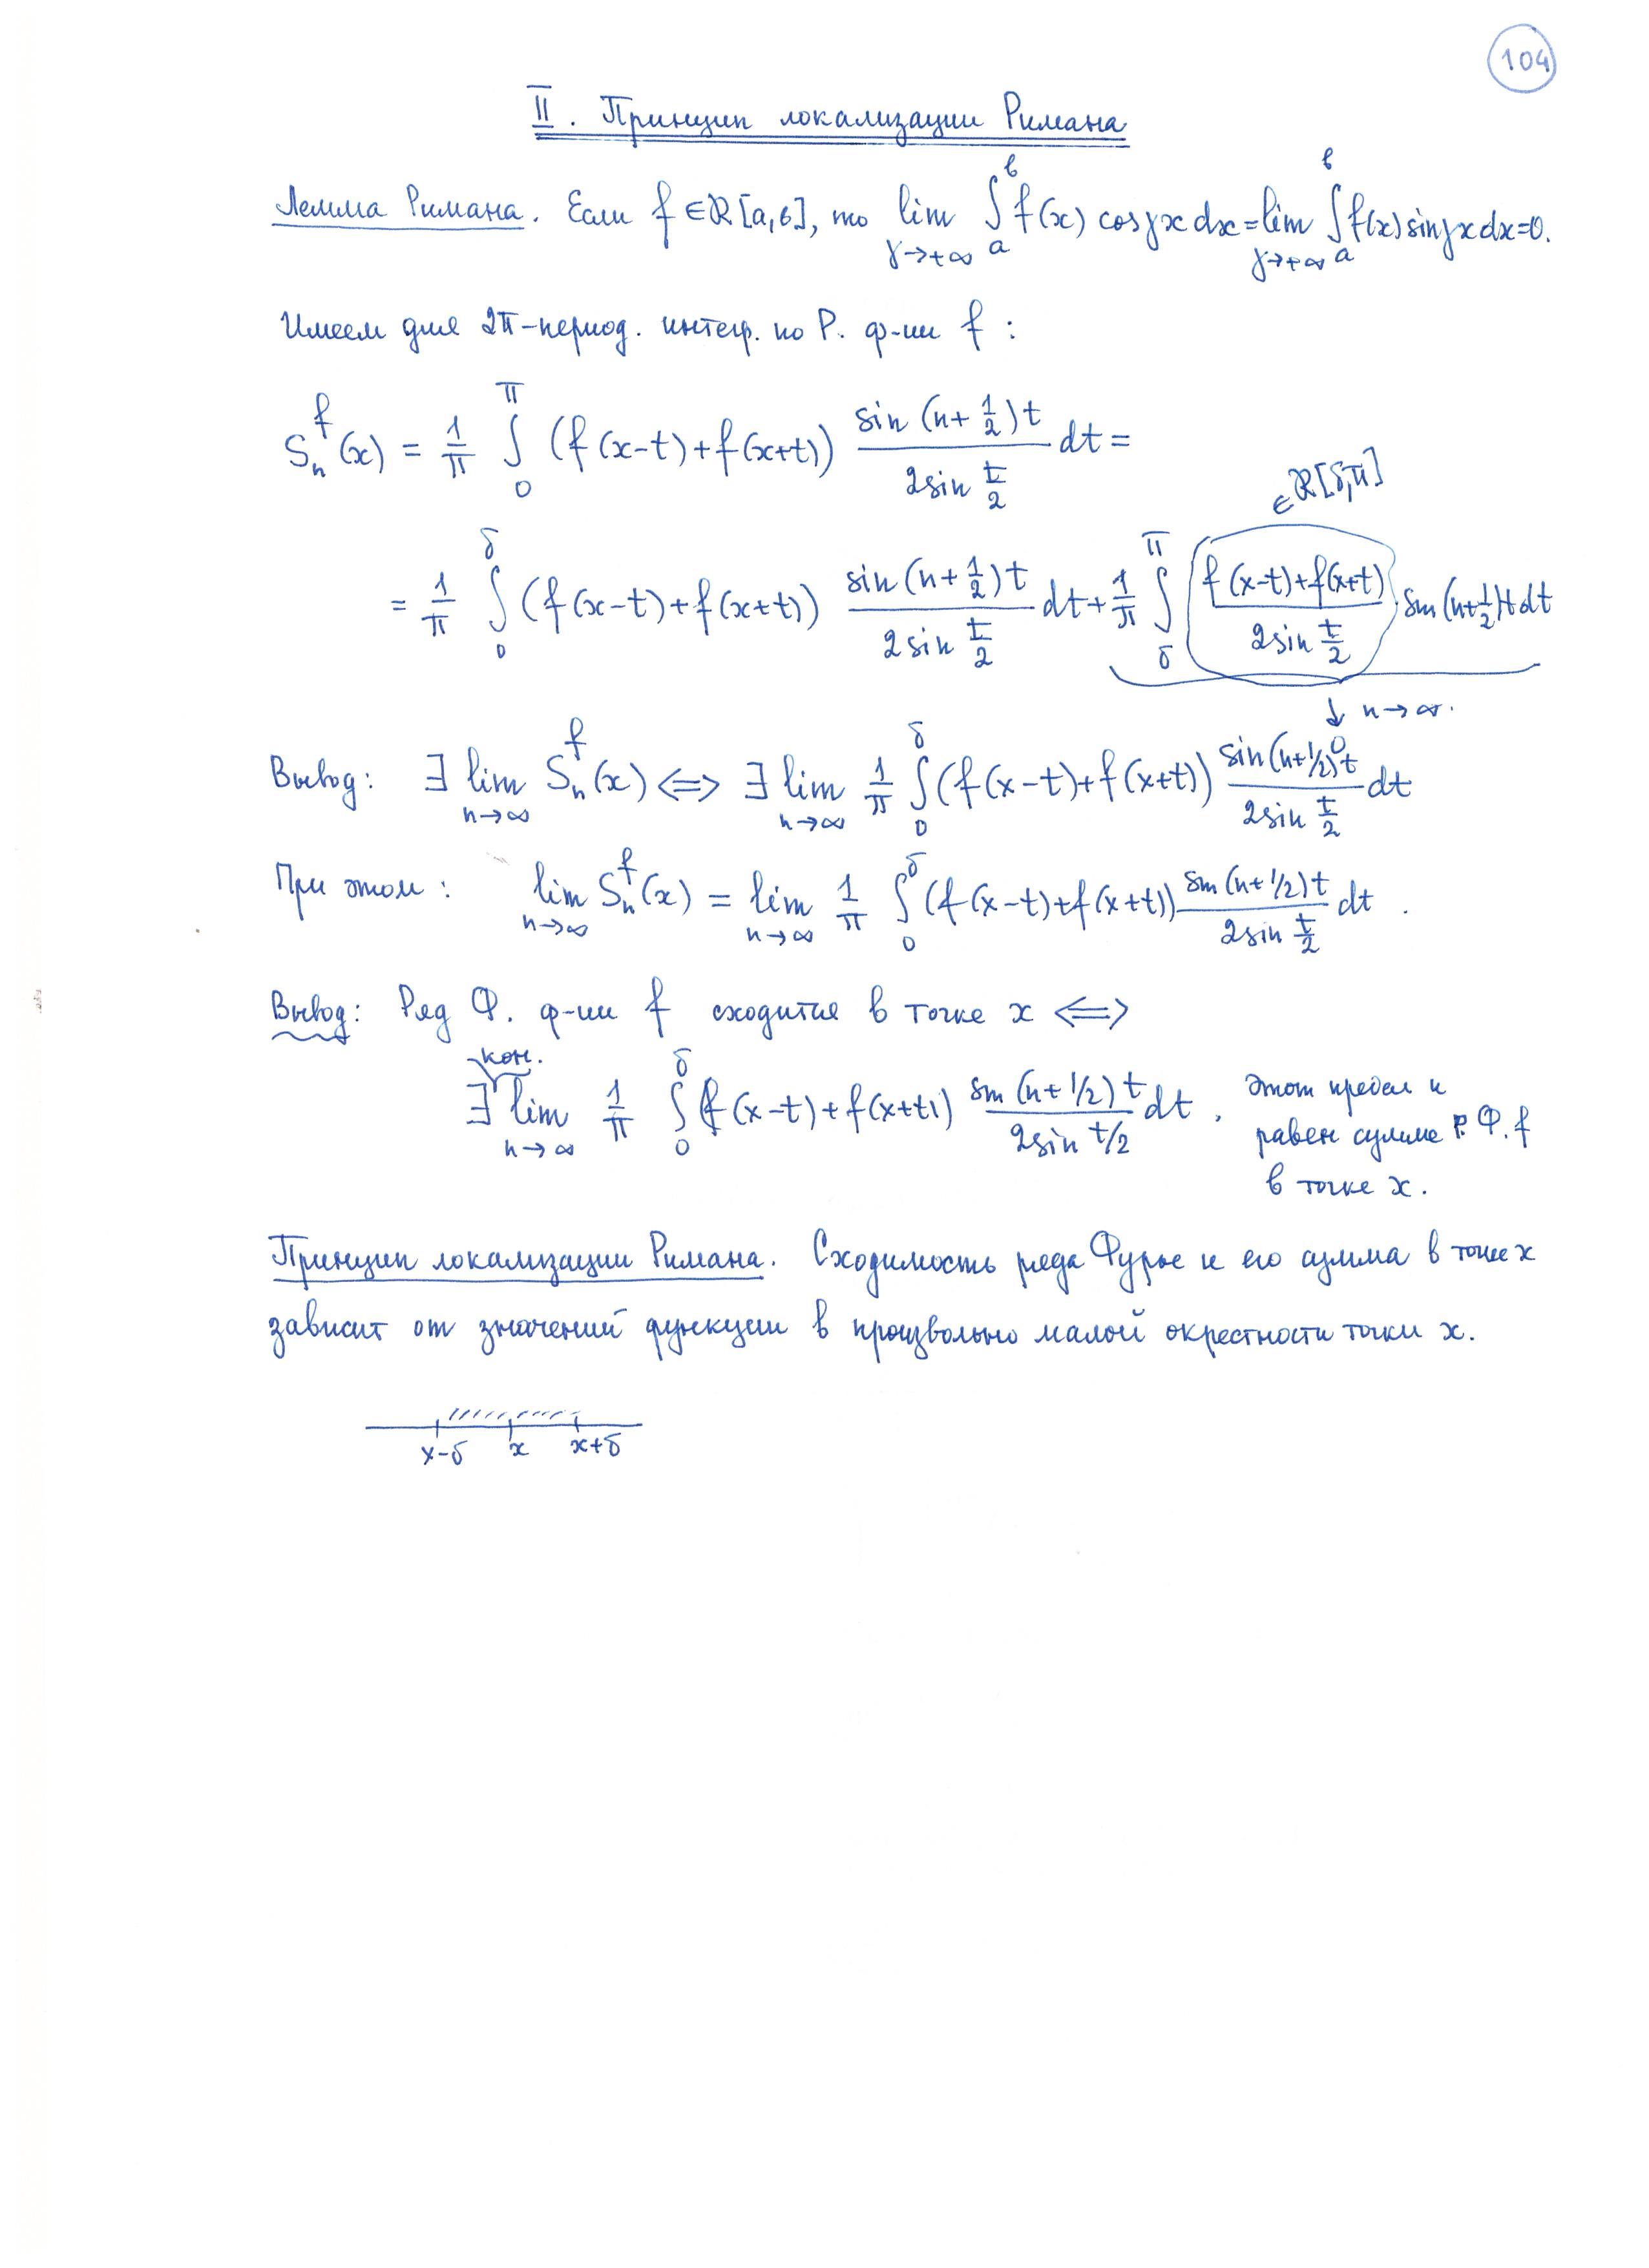 104
II. Принцип локализации Римана
Лемма Римана. Если f ∈ ℛ[a,b], то lim_{γ→+∞} ∫_a^b f(x) cosγx dx = lim_{γ→+∞} ∫_a^b f(x) sinγx dx = 0.
Имеем для 2π-период. интегр. по Р. ф-ии f :
S_n^f(x) = 1/π ∫_0^π (f(x-t)+f(x+t)) sin(n+1/2)t / 2sin t/2 dt =
∈ℛ[δ,π]
= 1/π ∫_0^δ (f(x-t)+f(x+t)) sin(n+1/2)t / 2sin t/2 dt + 1/π ∫_δ^π (f(x-t)+f(x+t)) / 2sin t/2 · sin(n+1/2)t dt
↓ n→∞.
0
Вывод: ∃ lim_{n→∞} S_n^f(x) ⟺ ∃ lim_{n→∞} 1/π ∫_0^δ (f(x-t)+f(x+t)) sin(n+1/2)t / 2sin t/2 dt
При этом: lim_{n→∞} S_n^f(x) = lim_{n→∞} 1/π ∫_0^δ (f(x-t)+f(x+t)) sin(n+1/2)t / 2sin t/2 dt .
Вывод: Ряд Ф. ф-ии f сходится в точке x ⟺
кон.
∃ lim_{n→∞} 1/π ∫_0^δ (f(x-t)+f(x+t)) sin(n+1/2)t / 2sin t/2 dt , этот предел и
равен сумме р. Ф. f
в точке x.
Принцип локализации Римана. Сходимость ряда Фурье и его сумма в точке x
зависит от значений функции в произвольно малой окрестности точки x.
x-δ x x+δ